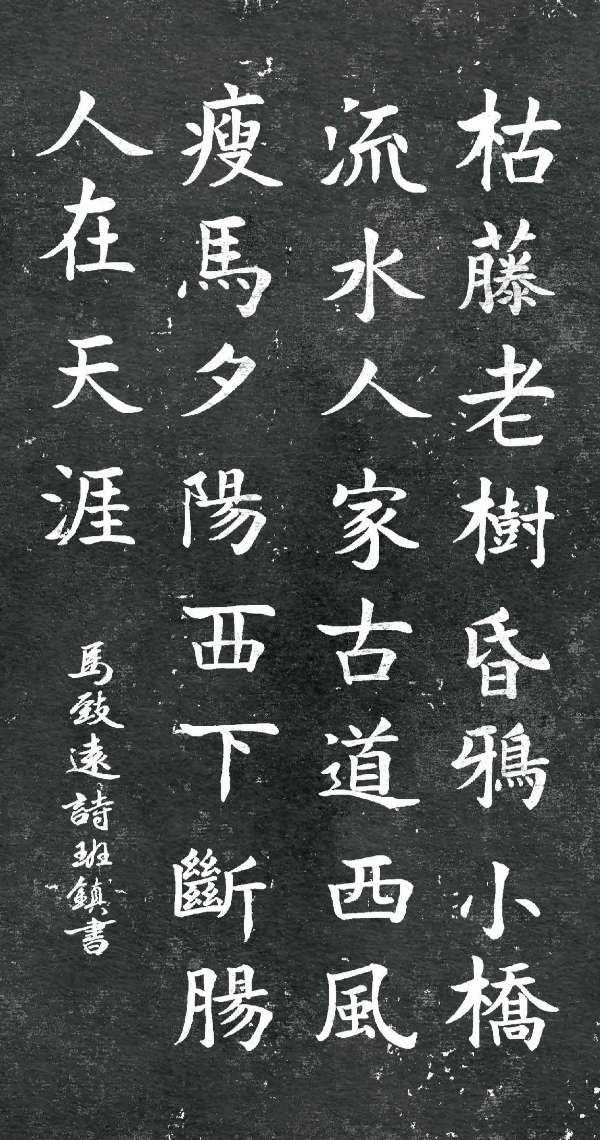 枯藤老樹昏鴉小橋
流水人家古道西風
瘦馬夕陽西下斷腸
人在天涯
馬致遠詩班鎮書